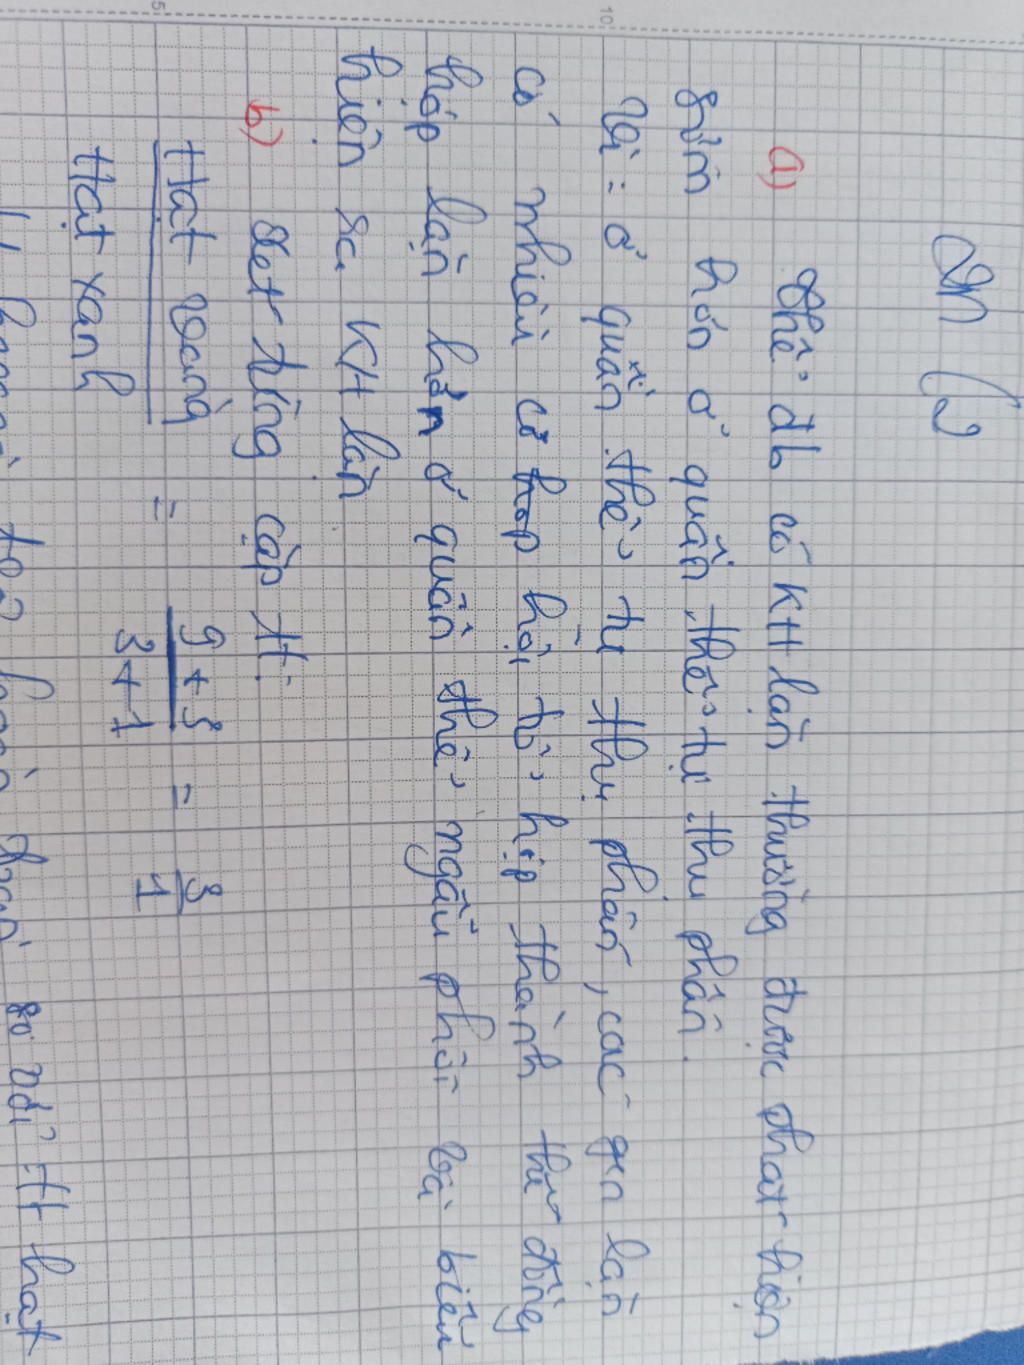 a) Thể đb có KH lặn thường được phát hiện
sớm hơn ở quần thể tự thụ phấn.
Vì: ở quần thể tự thụ phấn, các gen lặn
có nhiều cơ hội tổ hợp thành thể đồng
hợp lặn hơn ở quần thể ngẫu phối và biểu
hiện ra KH lặn
b) Xét từng cặp tt:
Hạt vàng = 9+3 = 3
Hạt xanh 3+1 1
so với tt hạt